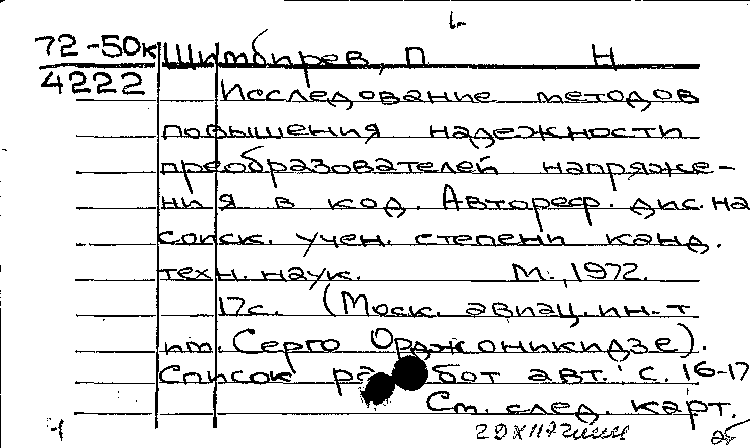 72-50к Шимбирев, П Н
4222 Исследование методов
повышения надежности
преобразователей напряже-
ния в код. Автореф. дис. на
соиск. учен. степени канд.
техн. наук. М., 1972.
17с. (Моск. авиац. ин-т
им. Серго Орджоникидзе).
Список работ авт.: с. 16-17
См. след. карт.